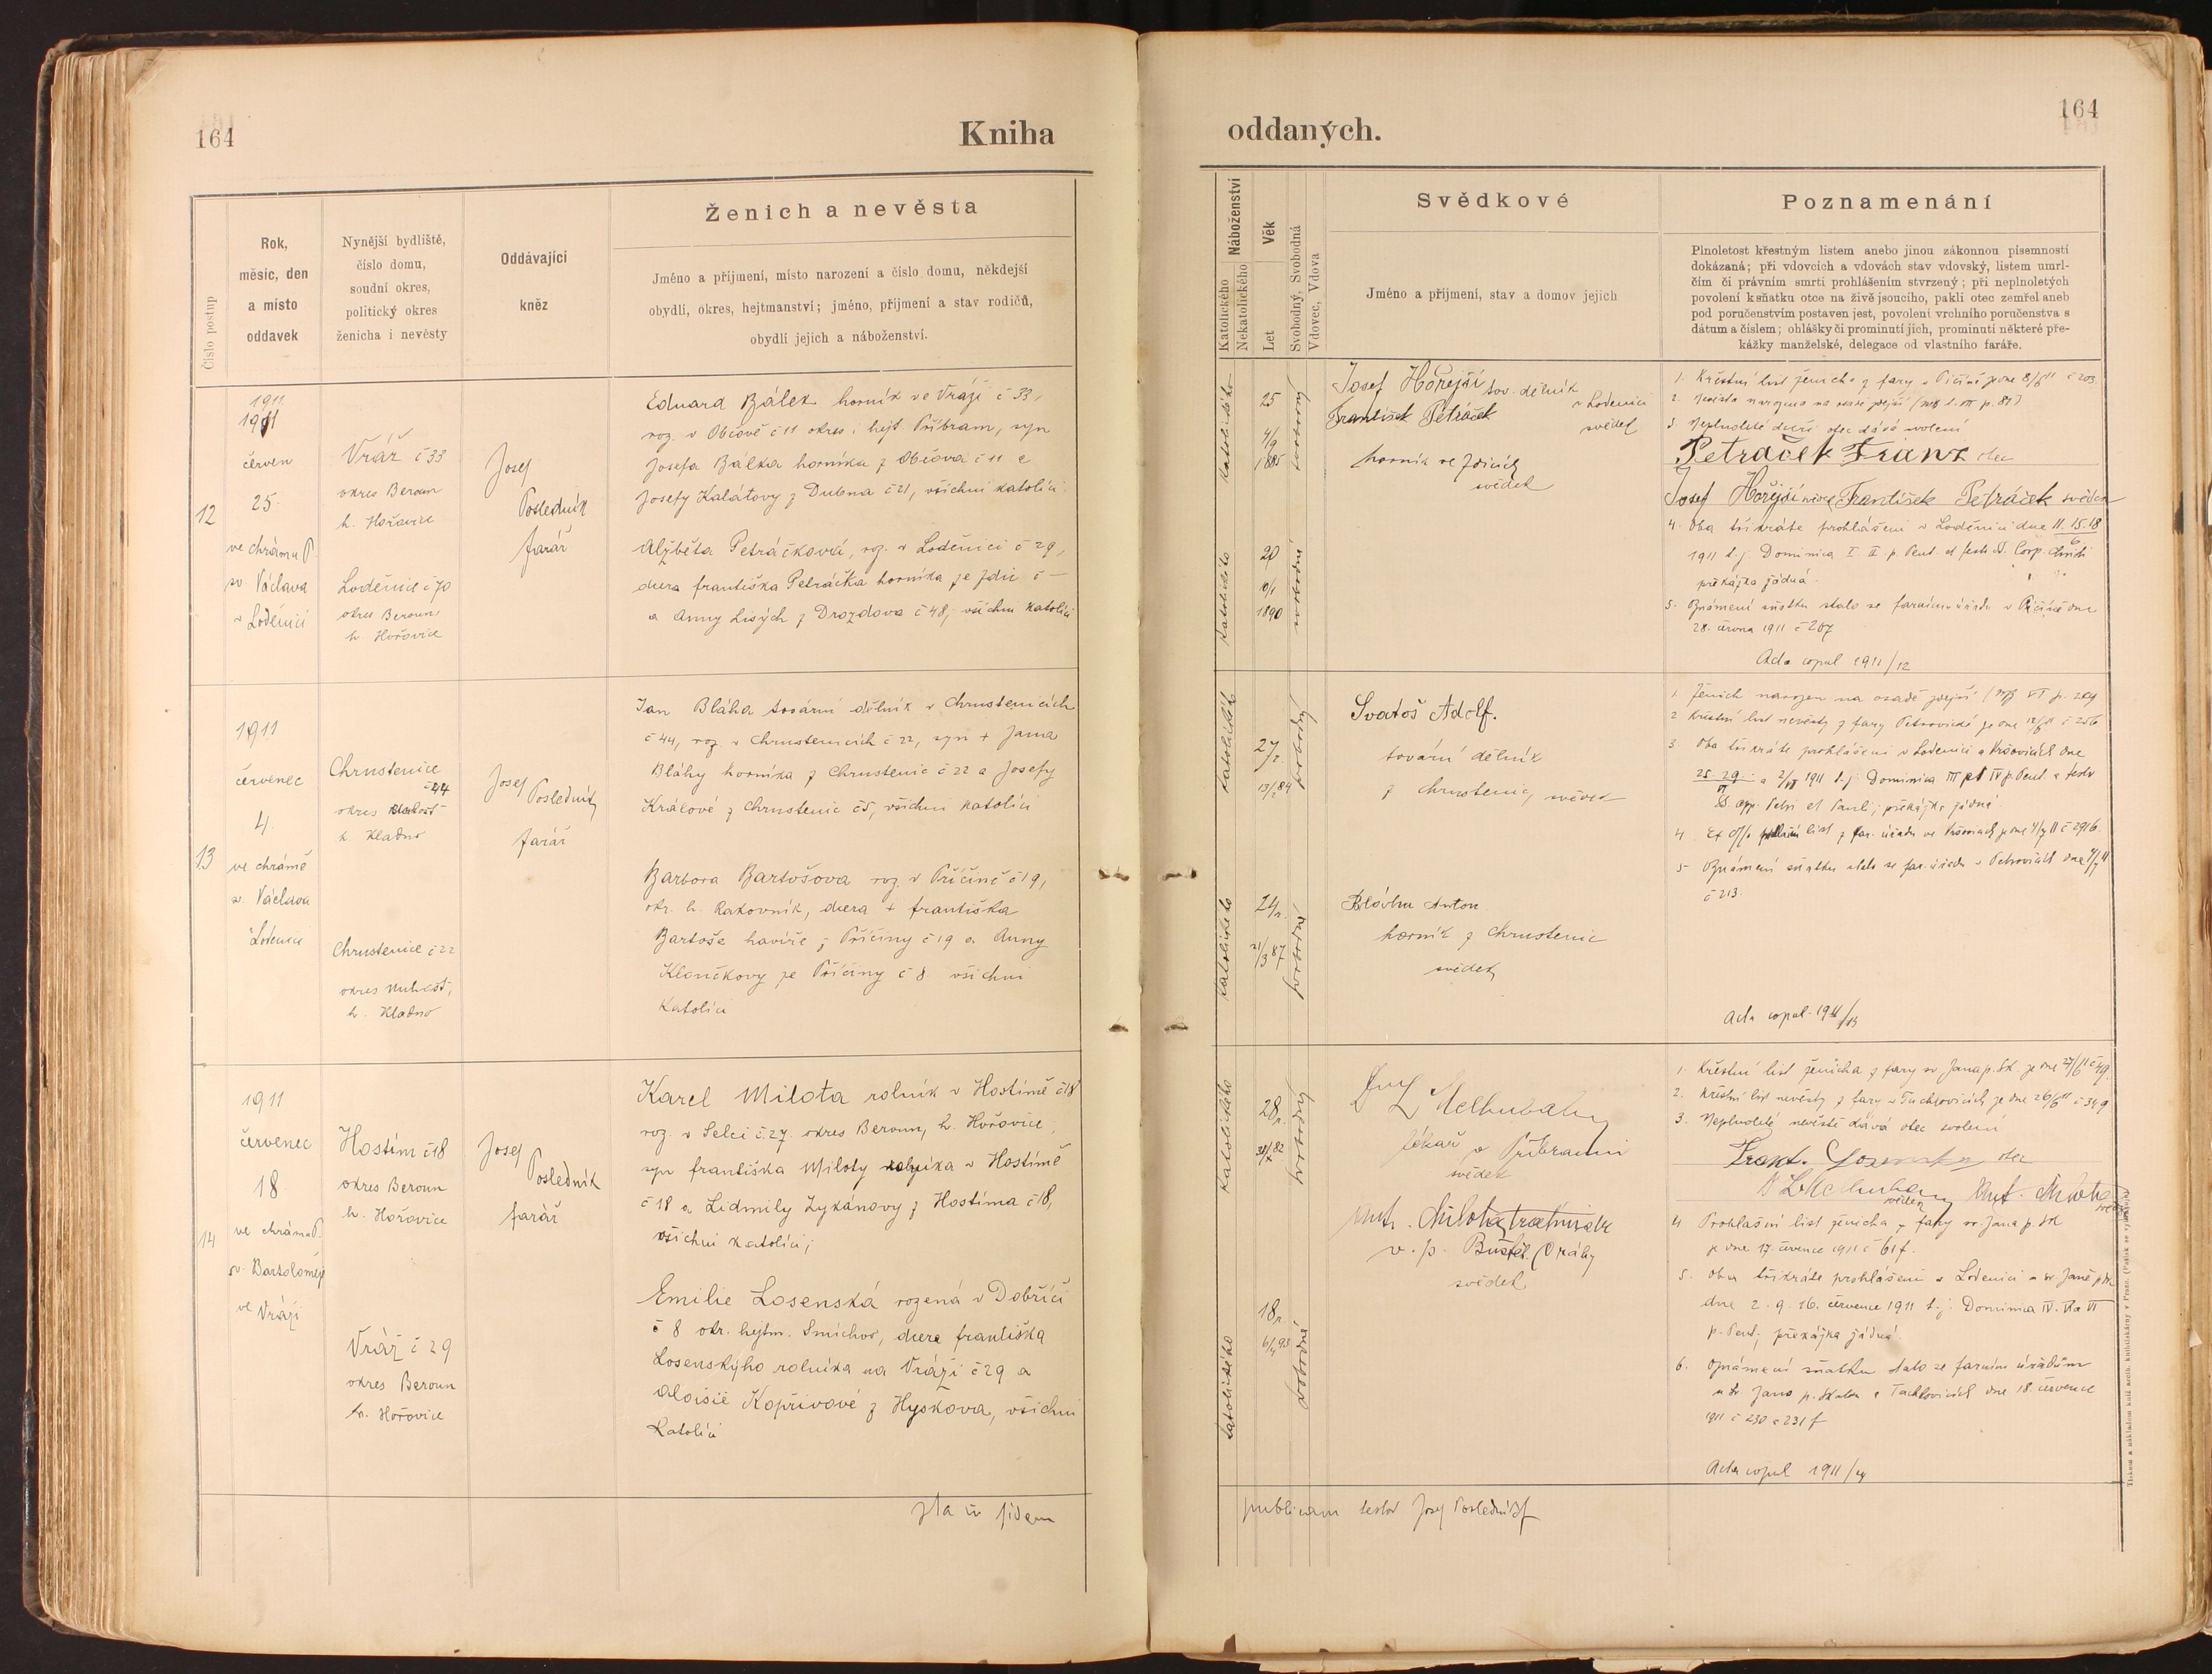 164
Kniha
Číslo postup
Rok,
měsíc, den
a místo
oddavek
Nynější bydliště,
číslo domu,
soudní okres,
politický okres
ženicha i nevěsty
Oddávající
kněz
Ženich a nevěsta
Jméno a příjmení, místo narození a číslo domu, někdejší
obydlí, okres, hejtmanství; jméno, příjmení a stav rodičů,
obydlí jejich a náboženství.
12
1911
1911
červen
25.
ve chrámu P.
sv Václava
v Loděnici
Vráž č 33
okres Beroun
h. Hořovice
Loděnice č 70
okres Beroun
h. Hořovice
Josef
Posledník
farář
Eduard Bálek horník ve Vráži č 33,
roz. v Občově č 11 okres i hejt Příbram, syn
Josefa Bálka horníka z Občova č 11 a
Josefy Kalátovy z Dubna č 21, všichni katolíci.
Alžběta Petráčková, roz. v Loděnici č 29,
dcera františka Petráčka horníka ze Zdic č —
a Anny Lisých z Drozdova č 48, všichni katolíci
13
1911
červenec
4.
ve chrámě
sv. Václava
Loděnice
Chrustenice
č 44
okres
h. Kladno
Chrustenice č 22
okres Unhošť,
h. Kladno
Josef Posledník
farář
Jan Bláha tovární dělník v Chrustenicích
č 44, roz. v Chrustenicích č 22, syn + Jana
Bláhy horníka z Chrustenic č 22 a Josefy
Králové z Chrustenic č 5, všichni katolíci
Barbora Bartošova roz. v Příčině č 19,
okr. h. Rakovník, dcera + františka
Bartoše havíře z Příčiny č 19 a Anny
Kloučkovy ze Příčiny č 8 všichni
katolíci
14
1911
červenec
18
ve chrámu P.
sv. Bartoloměje
ve Vráži
Hostím č 18
okres Beroun
h. Hořovice
Vráž č 29
okres Beroun
h. Hořovice
Josef
Posledník
farář
Karel Milota rolník v Hostímě č 18
roz. v Selci č. 27. okres Beroun, h. Hořovice,
syn františka Miloty rolníka v Hostímě
č 18 a Lidmily Zykánovy z Hostíma č 18,
všichni katolíci;
Emilie Losenská rozená v Dobříči
č 8 okr. hejtm. Smíchov, dcera františka
Losenskýho rolníka na Vráži č 29 a
Aloisie Kopřivové z Hyskova, všichni
katolíci
Ita in fidem
164
oddaných.
Náboženství
Katolického
Nekatolického
Věk
Let
Svobodný, Svobodná
Vdovec, Vdova
Svědkové
Jméno a příjmení, stav a domov jejich
Poznamenání
Plnoletost křestným listem anebo jinou zákonnou písemností
dokázaná; při vdovcích a vdovách stav vdovský, listem umrl-
čím či právním smrti prohlášením stvrzený; při neplnoletých
povolení k sňatku otce na živě jsoucího, pakli otec zemřel aneb
pod poručenstvím postaven jest, povolení vrchního poručenstva s
dátum a číslem; ohlášky či prominutí jich, prominutí některé pře-
kážky manželské, delegace od vlastního faráře.
katolického
25
4/9
1885
svobodný
Josef Hořejší tov. dělník
v Lodenici
svědek
František Petráček
horník ve Zdicích
svědek
katolického
20
10/1
1890
svobodná
1. Křestní list ženicha z fary v Pičíně ze dne 8/6 11 č 203.
2. Nevěsta narozena na osadě zdejší
3. Nepleteté dceři otec dává svolení
Petráček Franz otec
Josef Hořejší svědek František Petráček svědek
4. Oba třikráte prohlášeni v Loděnici dne 11. 15. 18
6
1911 t. j. Dominica I II. p. Pent. et festo SS. Corp. Christi
překážka žádná.
5. Oznámení sňatku stalo se farnímu úřadu v Pičíně dne
28. června 1911 č 207
Acta copul 1911/12
katolického
27 r.
13/2 84
svobodný
Svatoš Adolf.
tovární dělník
z Chrustenic, svědek
katolického
24 r.
21/3 87
svobodná
Anton
horník z Chrustenic
svědek
1. Ženich narozen na osadě zdejší
2 Křestní list nevěsty z fary Petrovické ze dne 12/6 11 č 256
3. Oba třikráte prohlášeni v Lodenici a Kršovicích dne
25. 29. a 2/VII 1911 t. j. Dominica III et IV p. Pent. a festo
SS. app. Petri et Pauli; překážka žádná.
5 Oznámení sňatku stalo se far. úřadu v Petrovicích dne 4/7 11
č 213.
Acta copul. 1911/13
katolického
28 r.
svobodný
lékař v Příbrami
svědek
Ant. Milota,
v. p. Buštěh. Dráhy
svědek
katolického
18 r.
6/4 93
svobodná
1. Křestní list ženicha z fary sv. Jana p. Sk. ze dne 27/6 11 č 49.
2. Křestní list nevěsty z fary v Tuchlovicích ze dne 26/6 11 č 349
3. Nepleteté nevěstě dává otec svolení
Frant. Losenský otec
svědek Ant. Milota
svědek
4 Prohlašní list ženicha z fary sv. Jana p. Sk
ze dne 17. července 1911 č 61 f.
5. Oba třikráte prohlášeni v Lodenici a sv. Janě p. Sk.
dne 2. 9. 16. července 1911 t. j. Dominica IV. V a VI
p. Pent; překážka žádná.
6. Oznámení sňatku stalo se farním úřadům
u Sv Jana p. Skalou a Tachlovicích dne 18. července
1911 č 230 a 231 f
Acta copul 1911/14
publicam testor Josef Posledník f